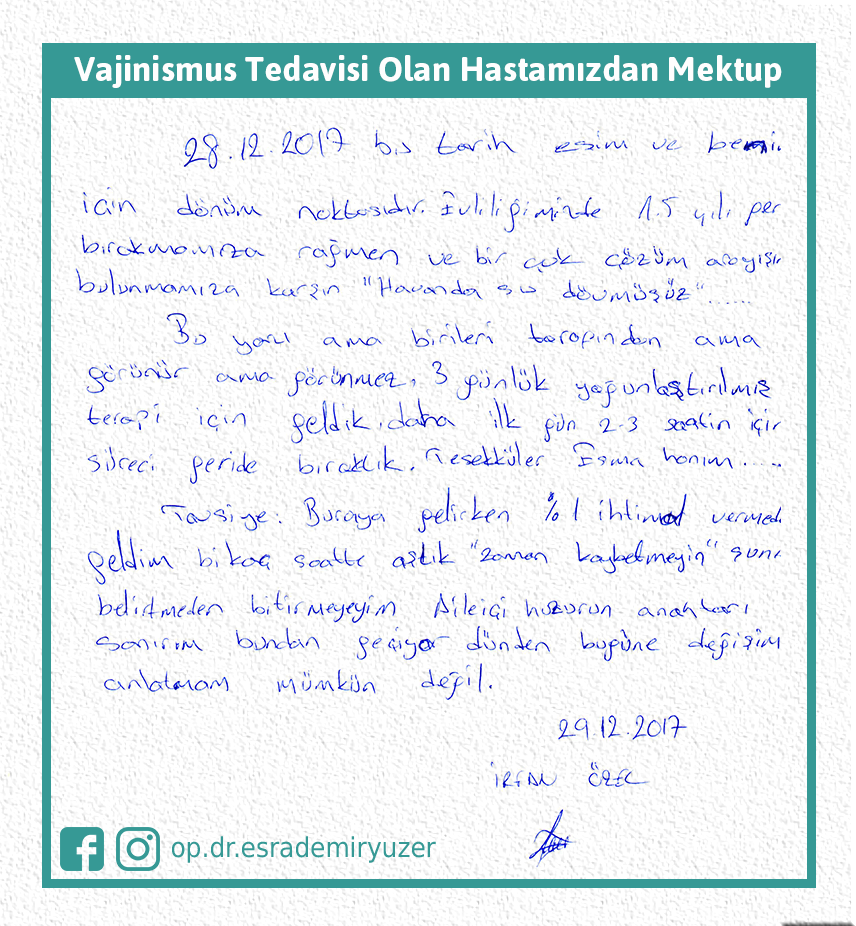 Vajinismus Tedavisi Olan Hastamızdan Mektup
28.12.2017 bu tarih eşim ve benim
için dönüm noktasıdır. Evliliğimizde 1.5 yılı geri
bırakmamıza rağmen ve bir çok çözüm arayışı
bulunmamıza karşın "Havanda su dövmüşüz"......
Bu yanlı ama birileri tarafından ama
görünür ama görünmez, 3 günlük yoğunlaştırılmış
terapi için geldik, daha ilk gün 2-3 saatin için
süreci geride bıraktık. Teşekkürler Esma hanım.....
Tavsiye: Buraya gelirken %1 ihtimal vermed
geldim bi kaç saatte aştık "zaman kaybetmeyin" şunu
belirtmeden bitirmeyeyim Aileiçi huzurun anahtarı
sanırım bundan geçiyor dünden bugüne değişim
anlatmam mümkün değil.
29.12.2017
İRFAN ÖZEL
op.dr.esrademiryuzer